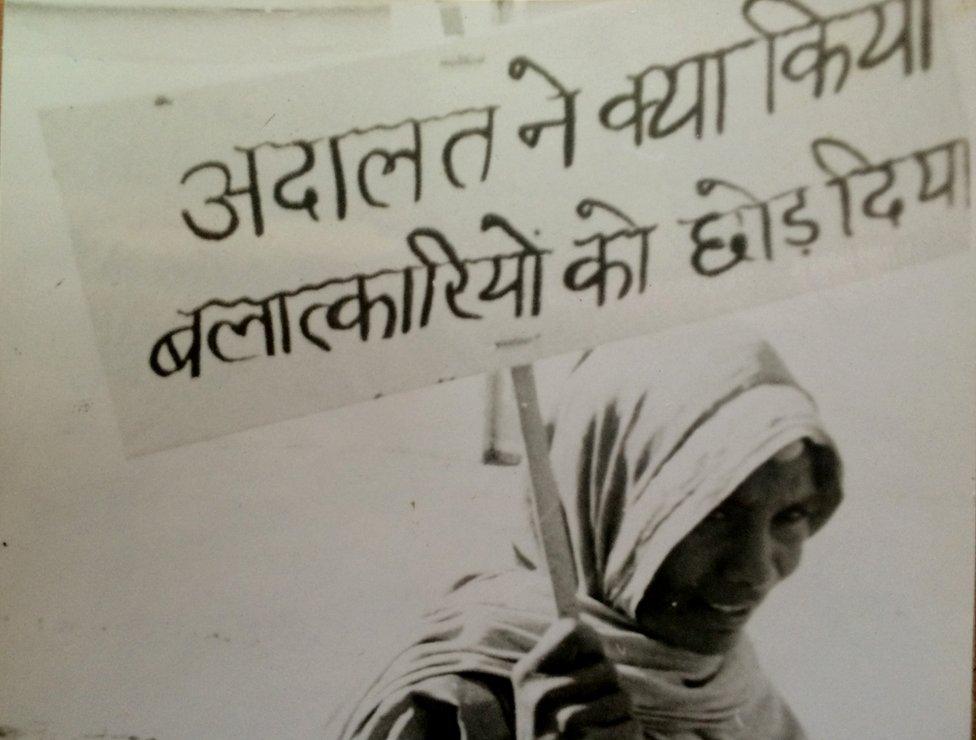 अदालत ने क्या किया
बलात्कारियों को छोड़ दिया